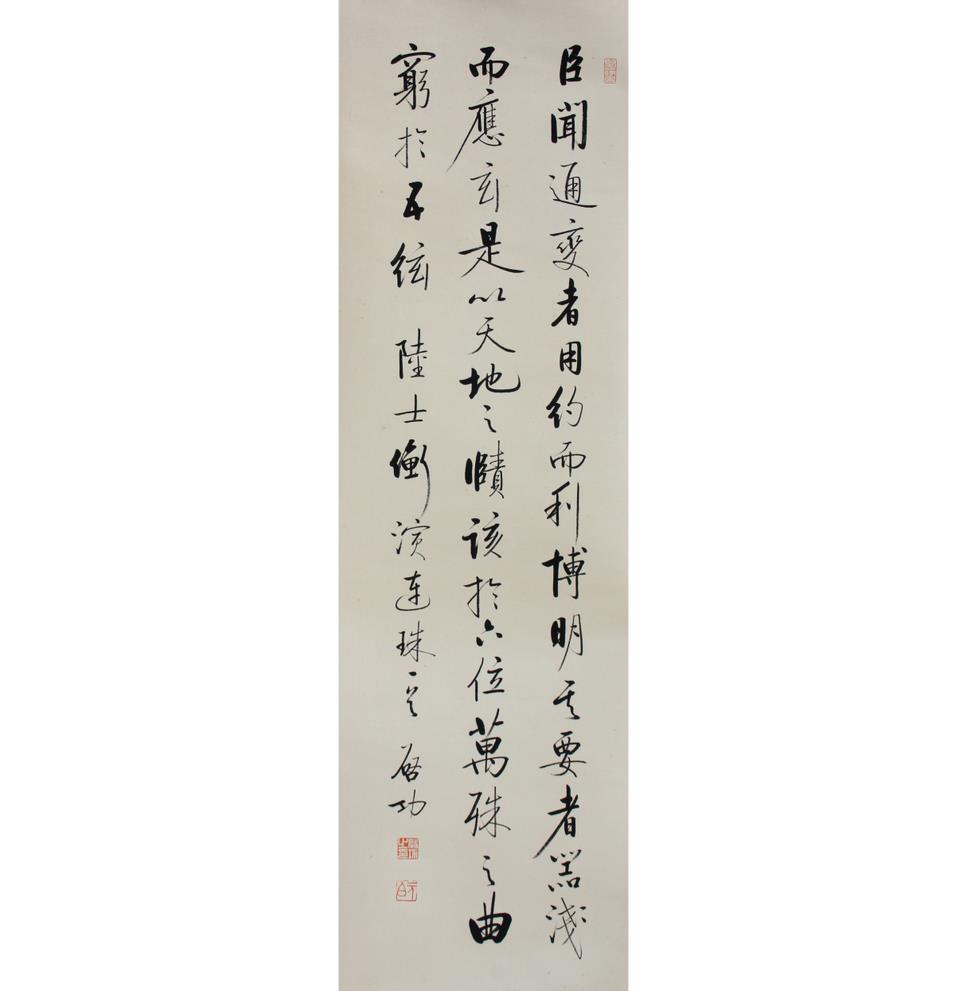 臣聞通變者用約而利博明其要者器淺
而應玄是以天地之賾該於六位萬殊之曲
窮於五絃 陸士衡演連珠一首 啓功
元白